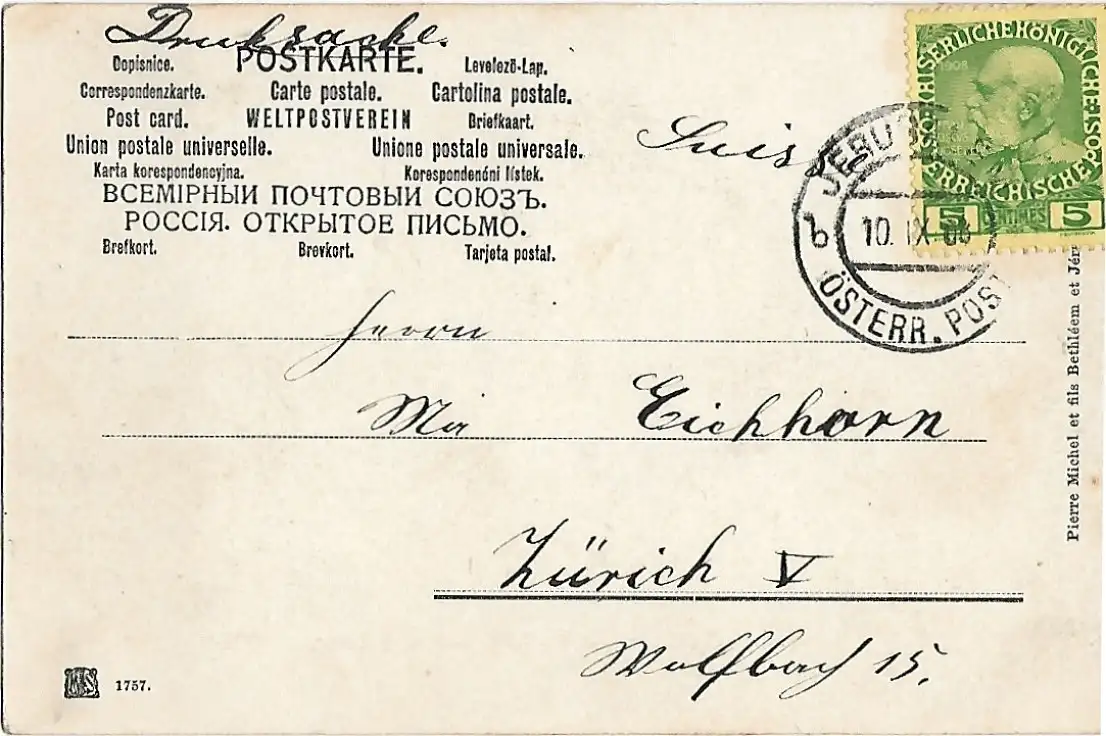 Drucksache.
POSTKARTE.
Dopisnice. Levelező-Lap.
Correspondenzkarte. Carte postale. Cartolina postale.
Post card. WELTPOSTVEREIN Briefkaart.
Union postale universelle. Unione postale universale.
Karta korespondencyjna. Korespondenční lístek.
ВСЕМІРНЫИ ПОЧТОВЫИ СОЮЗЪ.
РОССІЯ. ОТКРЫТОЕ ПИСЬМО.
Brefkort. Brevkort. Tarjeta postal.
Suisse
KAISERLICHEKÖNIGLICHE
ÖSTERREICHISCHE
1908
5 CENTIMES 5
b
10. IX
ÖSTERR. POST
Herrn
Eichhorn
Zürich V
Wolfbach 15.
Pierre Michel et fils Bethléem et
1757.